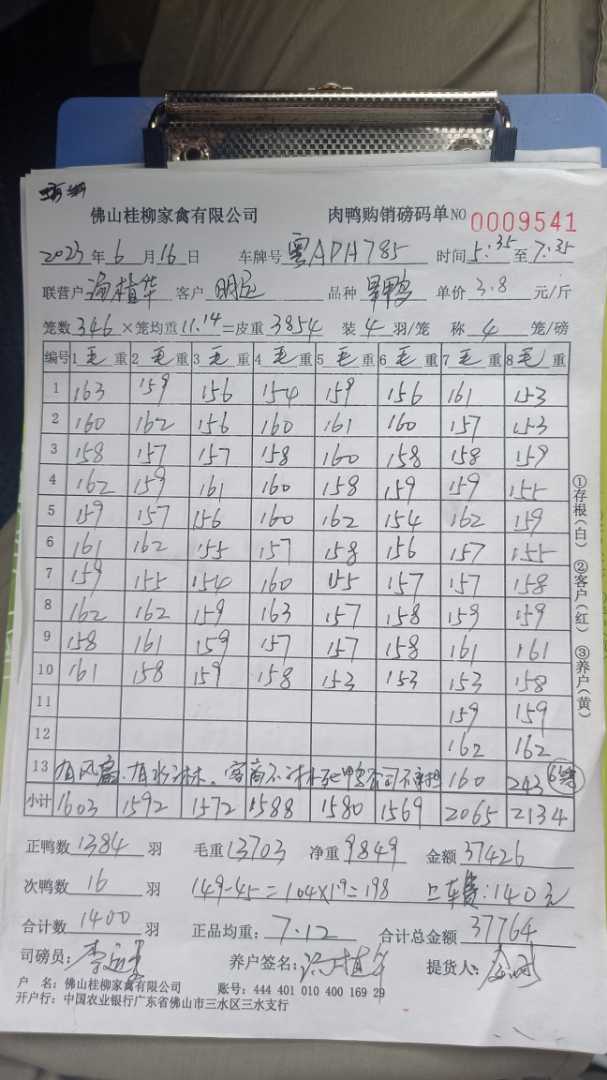 佛山桂柳家禽有限公司 肉鸭购销磅码单 NO 0009541
2023年6月16日 车牌号粤APH785 时间5:35至7:35
联营户 植华 客户 明 品种 鸭 单价3.8元/斤
笼数346×笼均重11.14=皮重3854 装4羽/笼 称4笼/磅
编号 1毛重 2毛重 3毛重 4毛重 5毛重 6毛重 7毛重 8毛重
1 163 159 156 154 159 156 161 153
2 160 162 156 160 161 160 157 153
3 158 157 157 158 160 158 158 159
4 162 159 161 160 158 159 159 155
5 159 157 156 160 162 154 162 159
6 161 162 155 157 158 156 157 155
7 159 155 154 160 155 157 157 158
8 162 162 159 163 157 158 159 159
9 158 161 159 157 157 158 161 161
10 161 158 159 158 153 153 153 158
11 159 159
12 162 162
13 有风扇.有水淋.客商不淋水死鸭公司不承担 160 243 6笼
小计 1603 1592 1572 1588 1580 1569 2065 2134
①存根(白) ②客户(红) ③养户(黄)
正鸭数1384羽 毛重13703 净重9849 金额37426
次鸭数16羽 149-45=104×1.9=198 车费:140元
合计数1400羽 正品均重:7.12 合计总金额37764
司磅员:李 养户签名: 植华 提货人:
户 名:佛山桂柳家禽有限公司 账号:444 401 010 400 169 29
开户行:中国农业银行广东省佛山市三水区三水支行